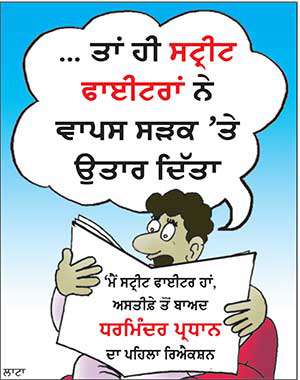 ... ਤਾਂ ਹੀ ਸਟ੍ਰੀਟ
ਫਾਈਟਰਾਂ ਨੇ
ਵਾਪਸ ਸੜਕ ’ਤੇ
ਉਤਾਰ ਦਿੱਤਾ
‘ਮੈਂ ਸਟ੍ਰੀਟ ਫਾਈਟਰ ਹਾਂ,
ਅਸਤੀਫ਼ੇ ਤੋਂ ਬਾਅਦ
ਧਰਮਿੰਦਰ ਪ੍ਰਧਾਨ
ਦਾ ਪਹਿਲਾ ਰਿਐਕਸ਼ਨ
ਲਾਟਾ